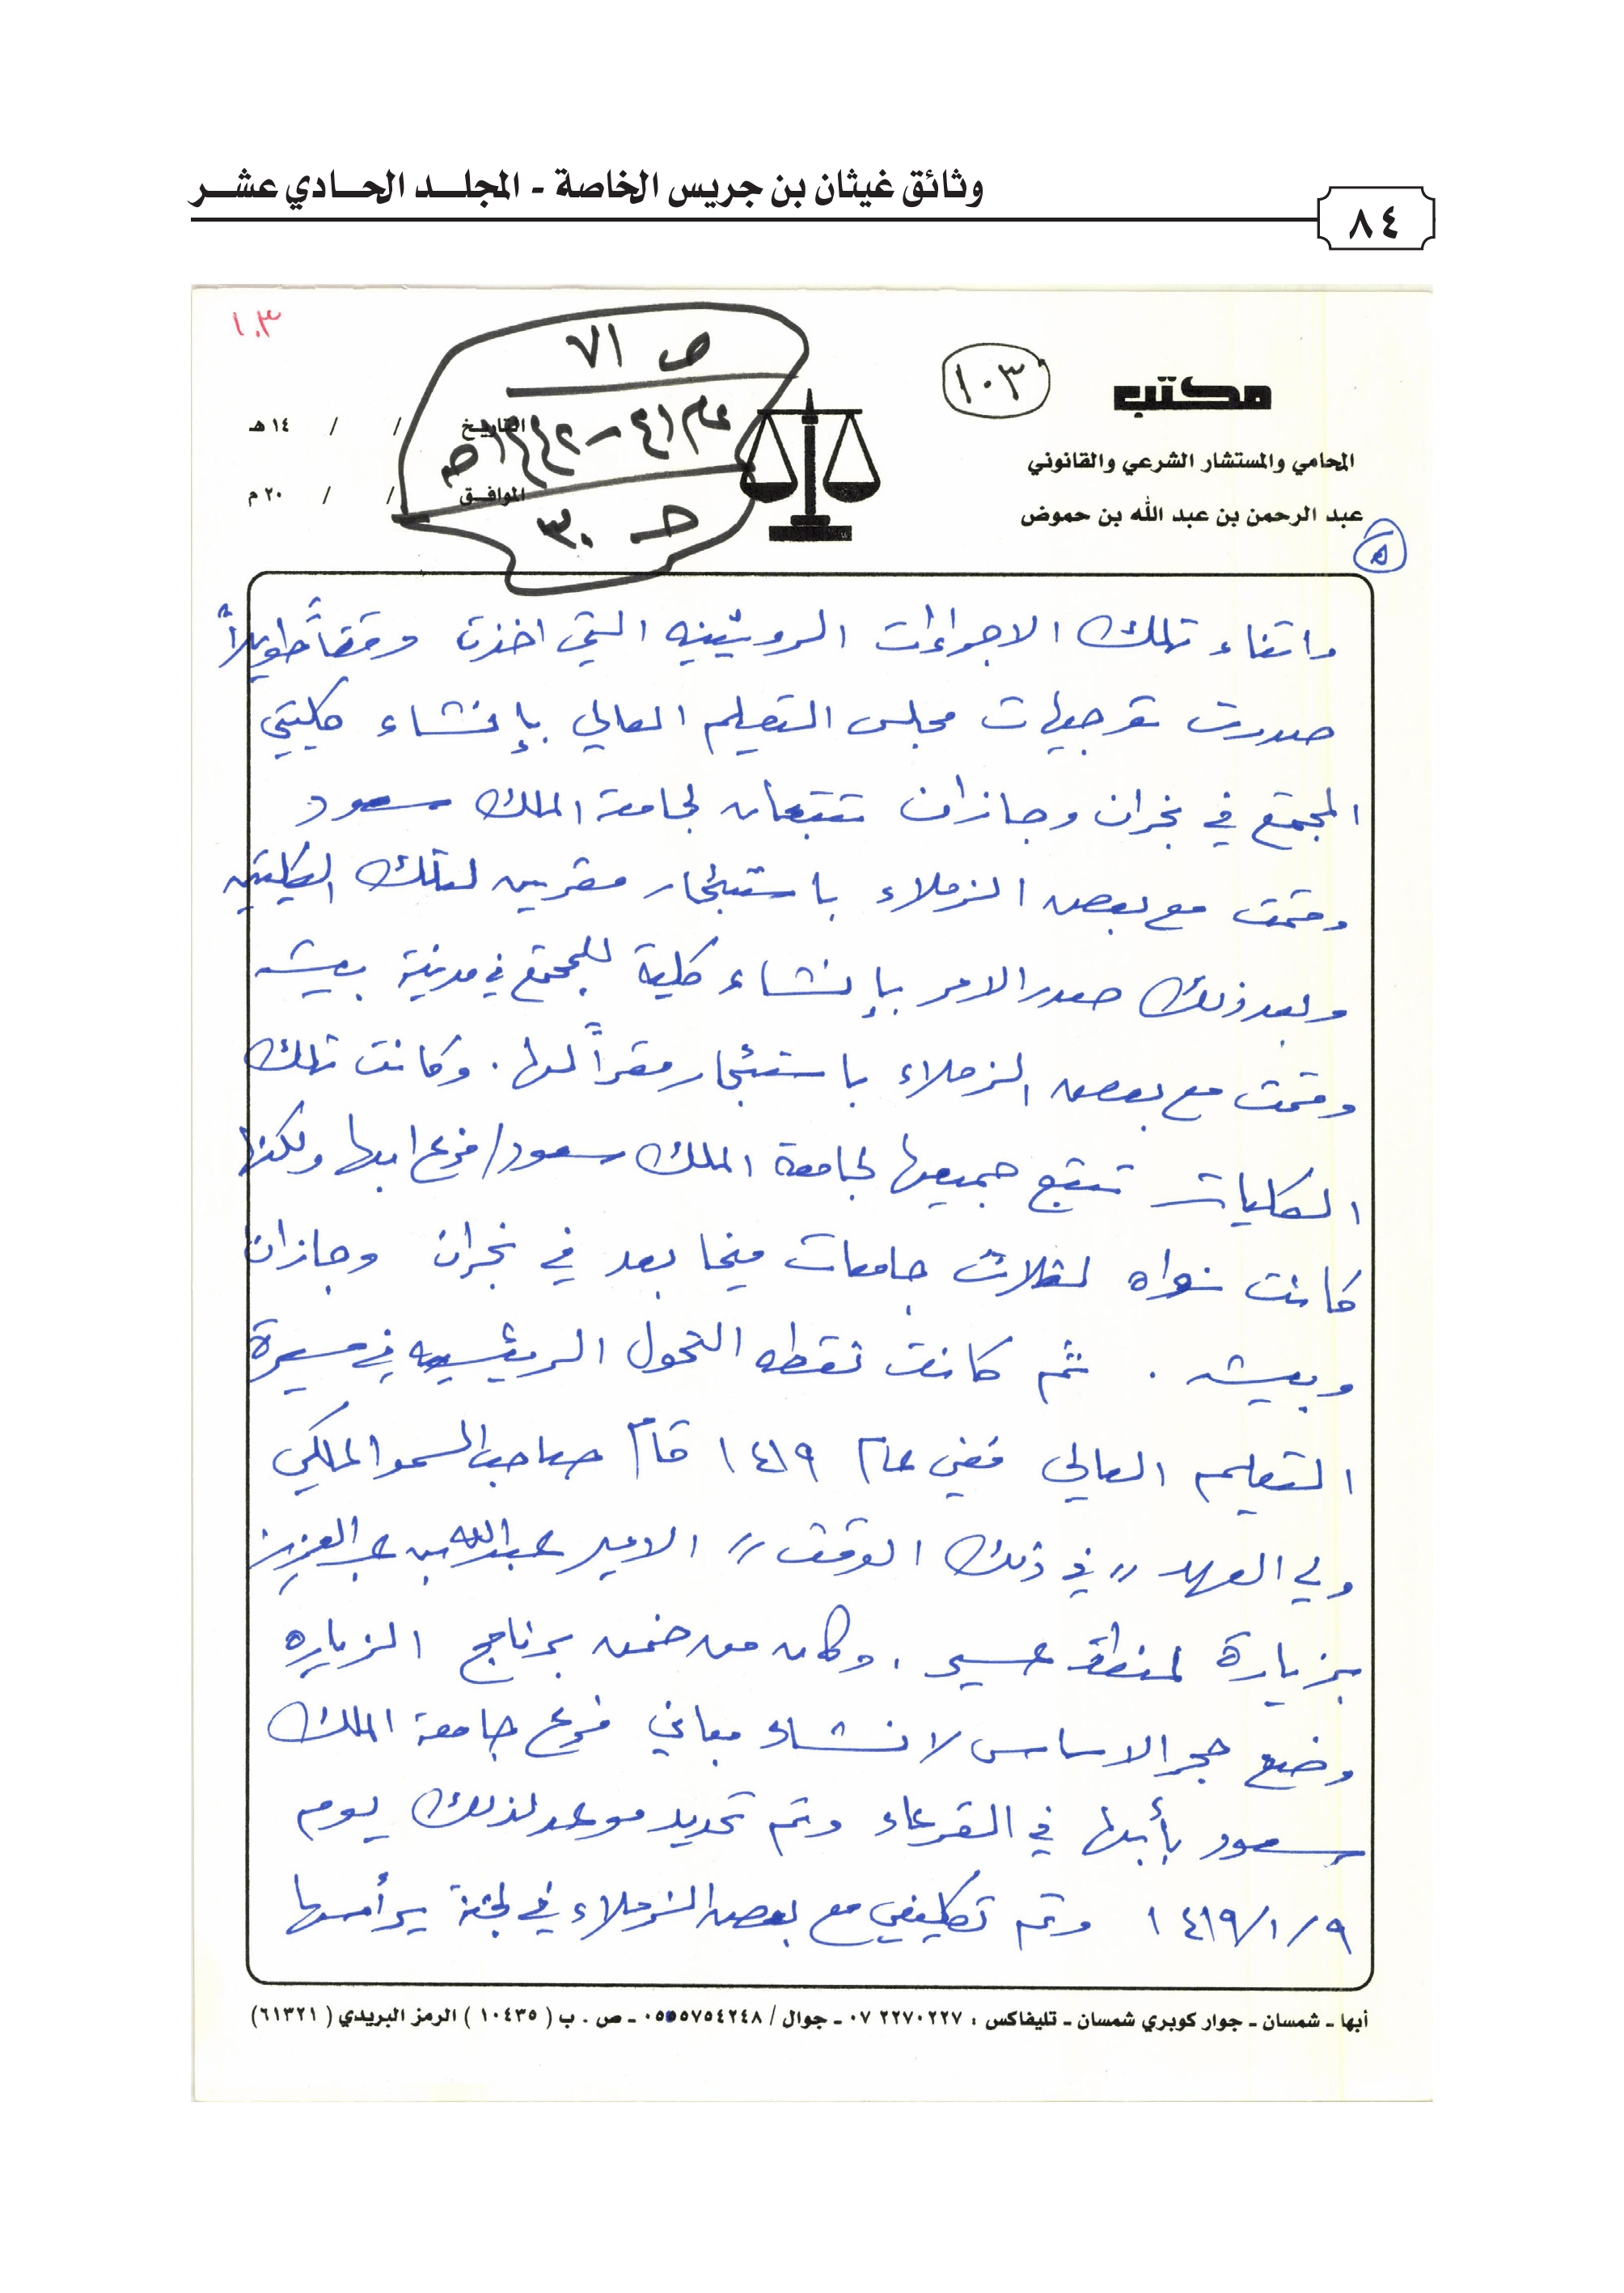 وثائق غيثان بن جريس الخاصة - المجلــد الحــادي عشــر
٨٤
١٠٣
ص ٧١
عام ٤١ - ١٤٤٢هـ
حـ ٣٠
١٠٣
مكتب
المحامي والمستشار الشرعي والقانوني
عبد الرحمن بن عبد الله بن حموض
التاريـخ / / ١٤ هـ
الموافـق / / ٢٠ م
٥
واثناء تلك الاجراءات الروتينيه التي اخذت وقتاً طويلاً
صدرت توجيهات مجلس التعليم العالي بإنشاء كليتي
المجتمع في نجران وجازان تتبعان لجامعة الملك سعود
وقمت مع بعض الزملاء باستئجار مقرين لتلك الكليتين
وبعد ذلك صدر الامر بإنشاء كلية للمجتمع في مدينة بيشه
وقمت مع بعض الزملاء باستئجار مقراً لها . وكانت تلك
الكليات تتبع جميعها لجامعة الملك سعود/ فرع ابها ولكنها
كانت نواه لثلاث جامعات فيما بعد في نجران وجازان
وبيشه . ثم كانت نقطه التحول الرئيسيه في مسيرة
التعليم العالي ففي عام ١٤١٩ قام صاحب السمو الملكي
ولي العهد " في ذلك الوقت " الامير عبدالله بن عبدالعزيز
بزيارة لمنطقة عسير . وكان من ضمن برنامج الزياره
وضع حجر الاساس لانشاء مباني فرع جامعة الملك
سعود بأبها في القرعاء وتم تحديد موعد لذلك يوم
١٤١٩/١/٩ وتم تكليفي مع بعض الزملاء في لجنة يرأسها
أبها ـ شمسان ـ جوار كوبري شمسان ـ تليفاكس : ٢٢٧٠٢٢٧ ٠٧ ـ جوال / ٠٥٥٥٧٥٤٢٤٨ ـ ص . ب ( ١٠٤٣٥ ) الرمز البريدي ( ٦١٣٢١ )